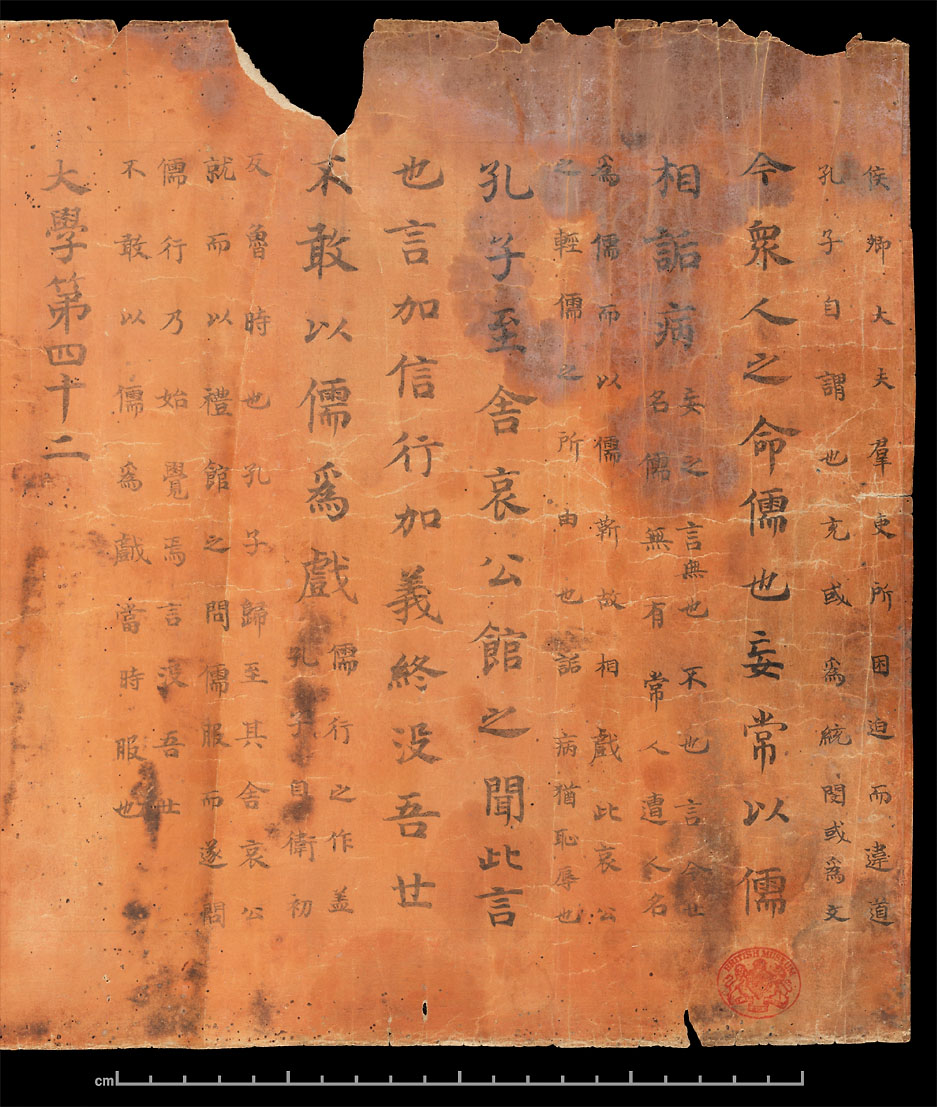 侯卿大夫羣吏所困迫而違道
孔子自謂也充或爲統閔或爲文
今衆人之命儒也妄常以儒
相詬病
妄之言無也不也言今世
名儒無有常人遭人名
爲儒而以儒靳故相戲此哀公
之輕儒之所由也詬病猶恥辱也
孔子至舍哀公館之聞此言
也言加信行加義終没吾世
不敢以儒爲戲
儒行之作蓋
孔子自衛初
反魯時也孔子歸至其舍哀公
就而以禮館之問儒服而遂問
儒行乃始覺焉言没吾世
不敢以儒爲戲當時服也
大學第四十二
BRITISH MUSEUM
cm